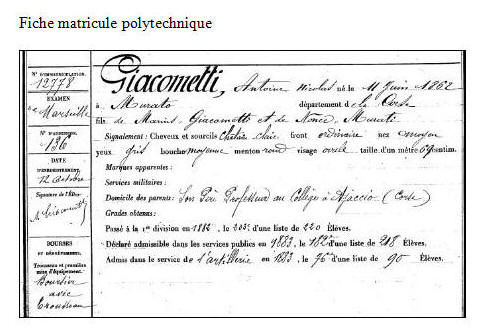 Fiche matricule polytechnique
N° D'IMMATRICULATION.
12778
EXAMEN
de Marseille
N° D'ADMISSION.
136
DATE
D'ENREGISTREMENT.
12 octobre
Signature de l'Élève.
A. Giacometti
BOURSES
ET DÉPARTEMENTS.
Trousseau et première mise d'équipement.
Boursier
avec
Trousseau
Giacometti, Antoine Nicolas né le 11 Juin 1862
à Murato département de la Corse
fils de Marius Giacometti et de Murati
Signalement : Cheveux et sourcils châtain clair front ordinaire nez moyen
yeux gris bouche moyenne menton rond visage ovale taille d'un mètre centim.
Marques apparentes :
Services militaires :
Domicile des parents: Son Père Professeur au Collège à Ajaccio (Corse)
Grades obtenus :
Passé à la 1re division en 1882, le 203e d'une liste de 220 Élèves.
Déclaré admissible dans les services publics en 1883, le 182e d'une liste de 218 Élèves.
Admis dans le service de l'artillerie en 1883, le 76e d'une liste de 90 Élèves.